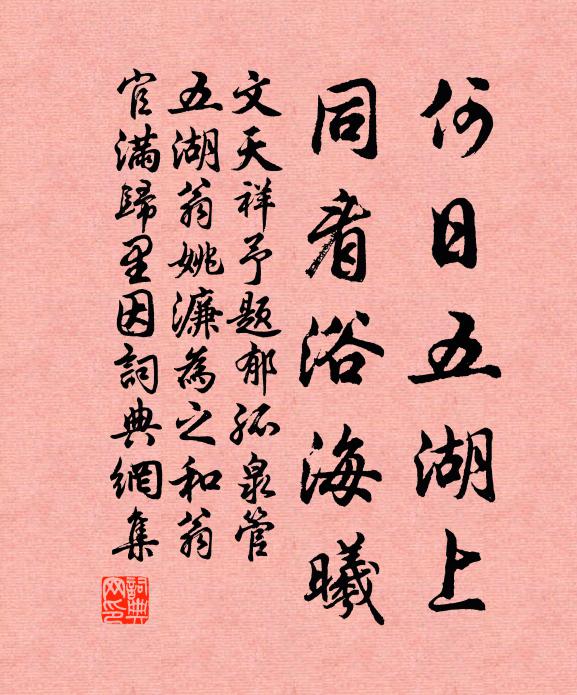 何日五湖上
同看浴海曦
文天祥予題郁孤泉管
五湖翁姚濂為之和翁
官滿歸里因詞典網集
詞典
网印